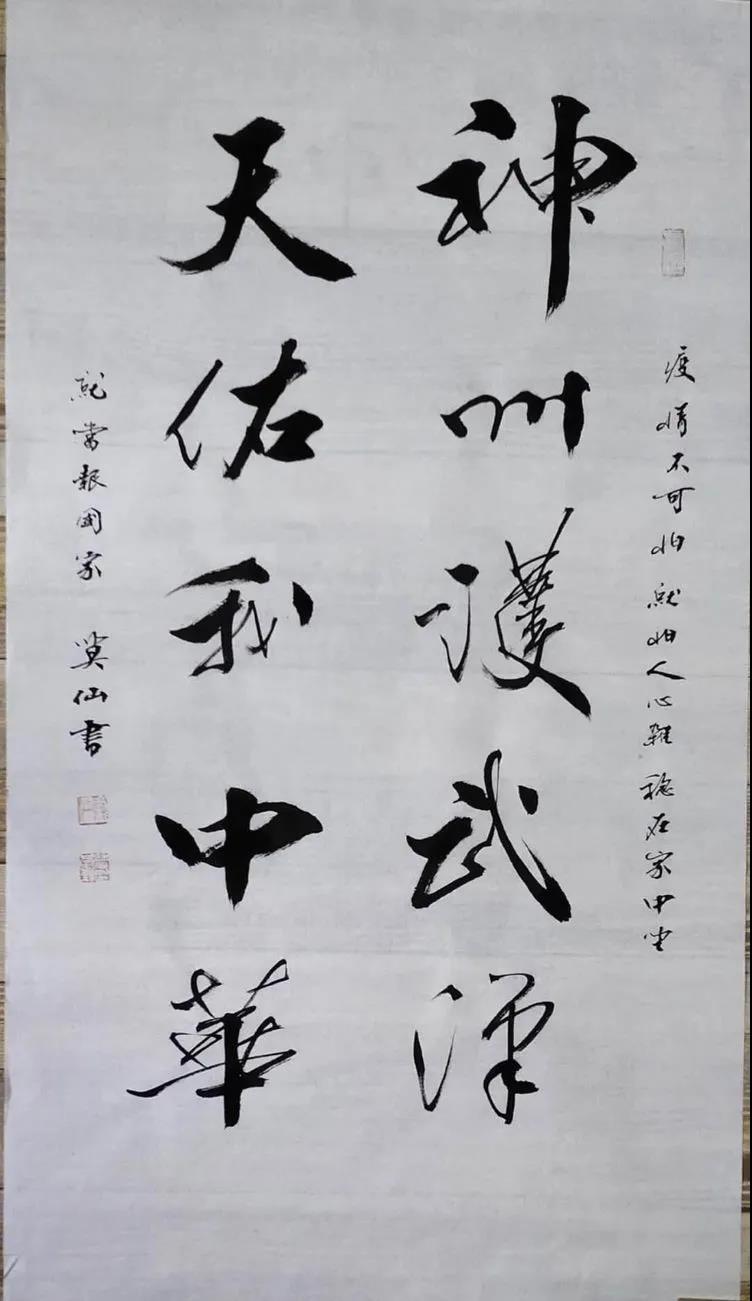 疫情不可怕 就怕人心雜 穩在家中坐
神州護武漢
天佑我中華
就當報國家 莫仙書